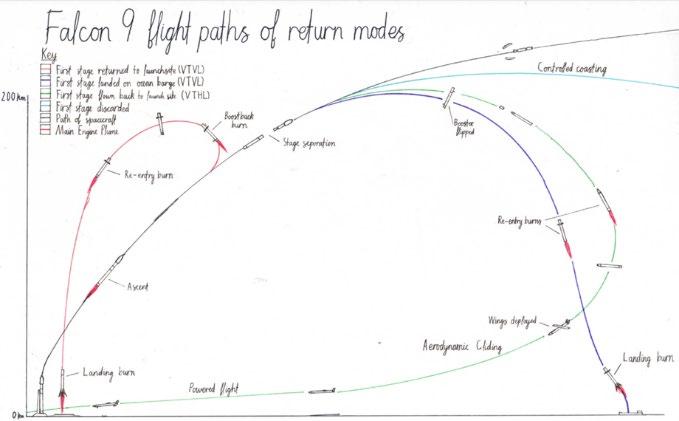 Falcon 9 flight paths of return modes
Key
First stage returned to launchsite (VTVL)
First stage landed on ocean barge (VTVL)
First stage flown back to launch site (VTHL)
First stage discarded
Path of spacecraft
Main Engine Plume
200 km
Boostback
burn
Re-entry burn
Stage seperation
Controled coasting
Booster
flipped
Re-entry burns
Ascent
Wings deployed
Aerodynamic Gliding
Landing burn
Landing burn
Powered flight
0 km